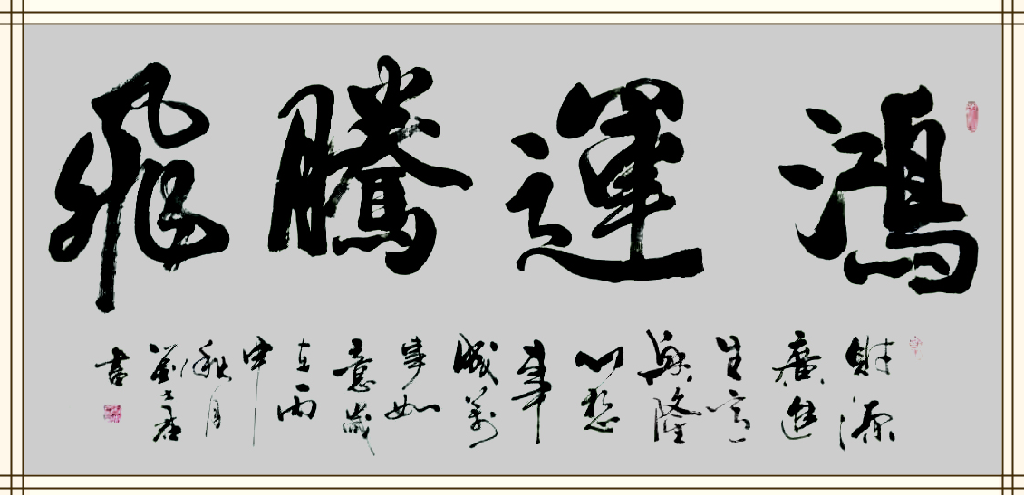 鴻運騰飛
財源
廣進
生意
興隆
心想
事
成萬
事如
意歲
在丙
申
秋月
劉
書